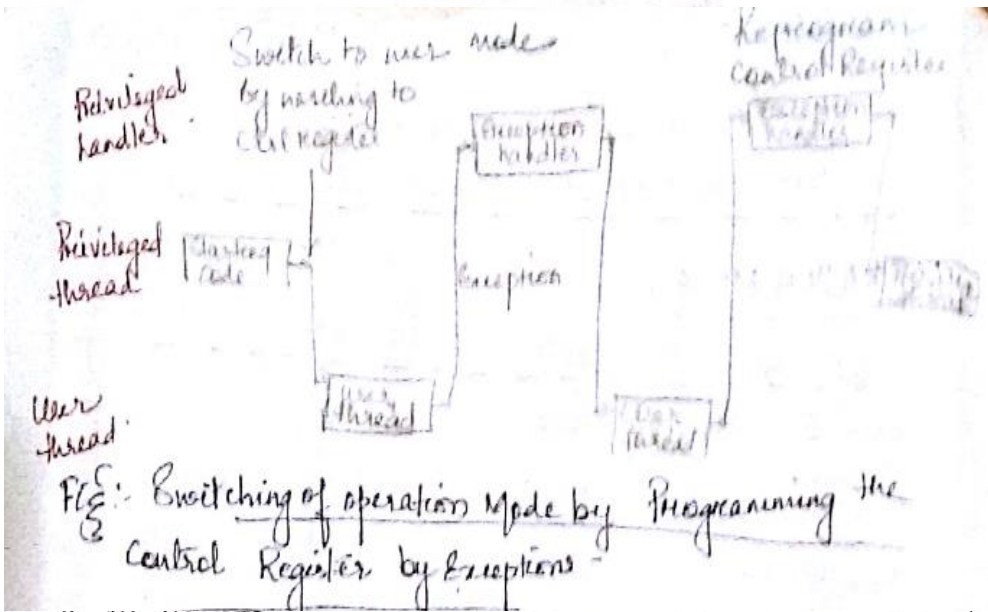 Switch to user mode
by writing to
Ctrl register
Reprogram
Control Register
Privileged
handler
Exception
handler
Exception
handler
Privileged
thread
Starting
Code
Exception
User
thread
User
thread
User
thread
Fig:- Switching of operation Mode by Programming the
Control Register by Exceptions-